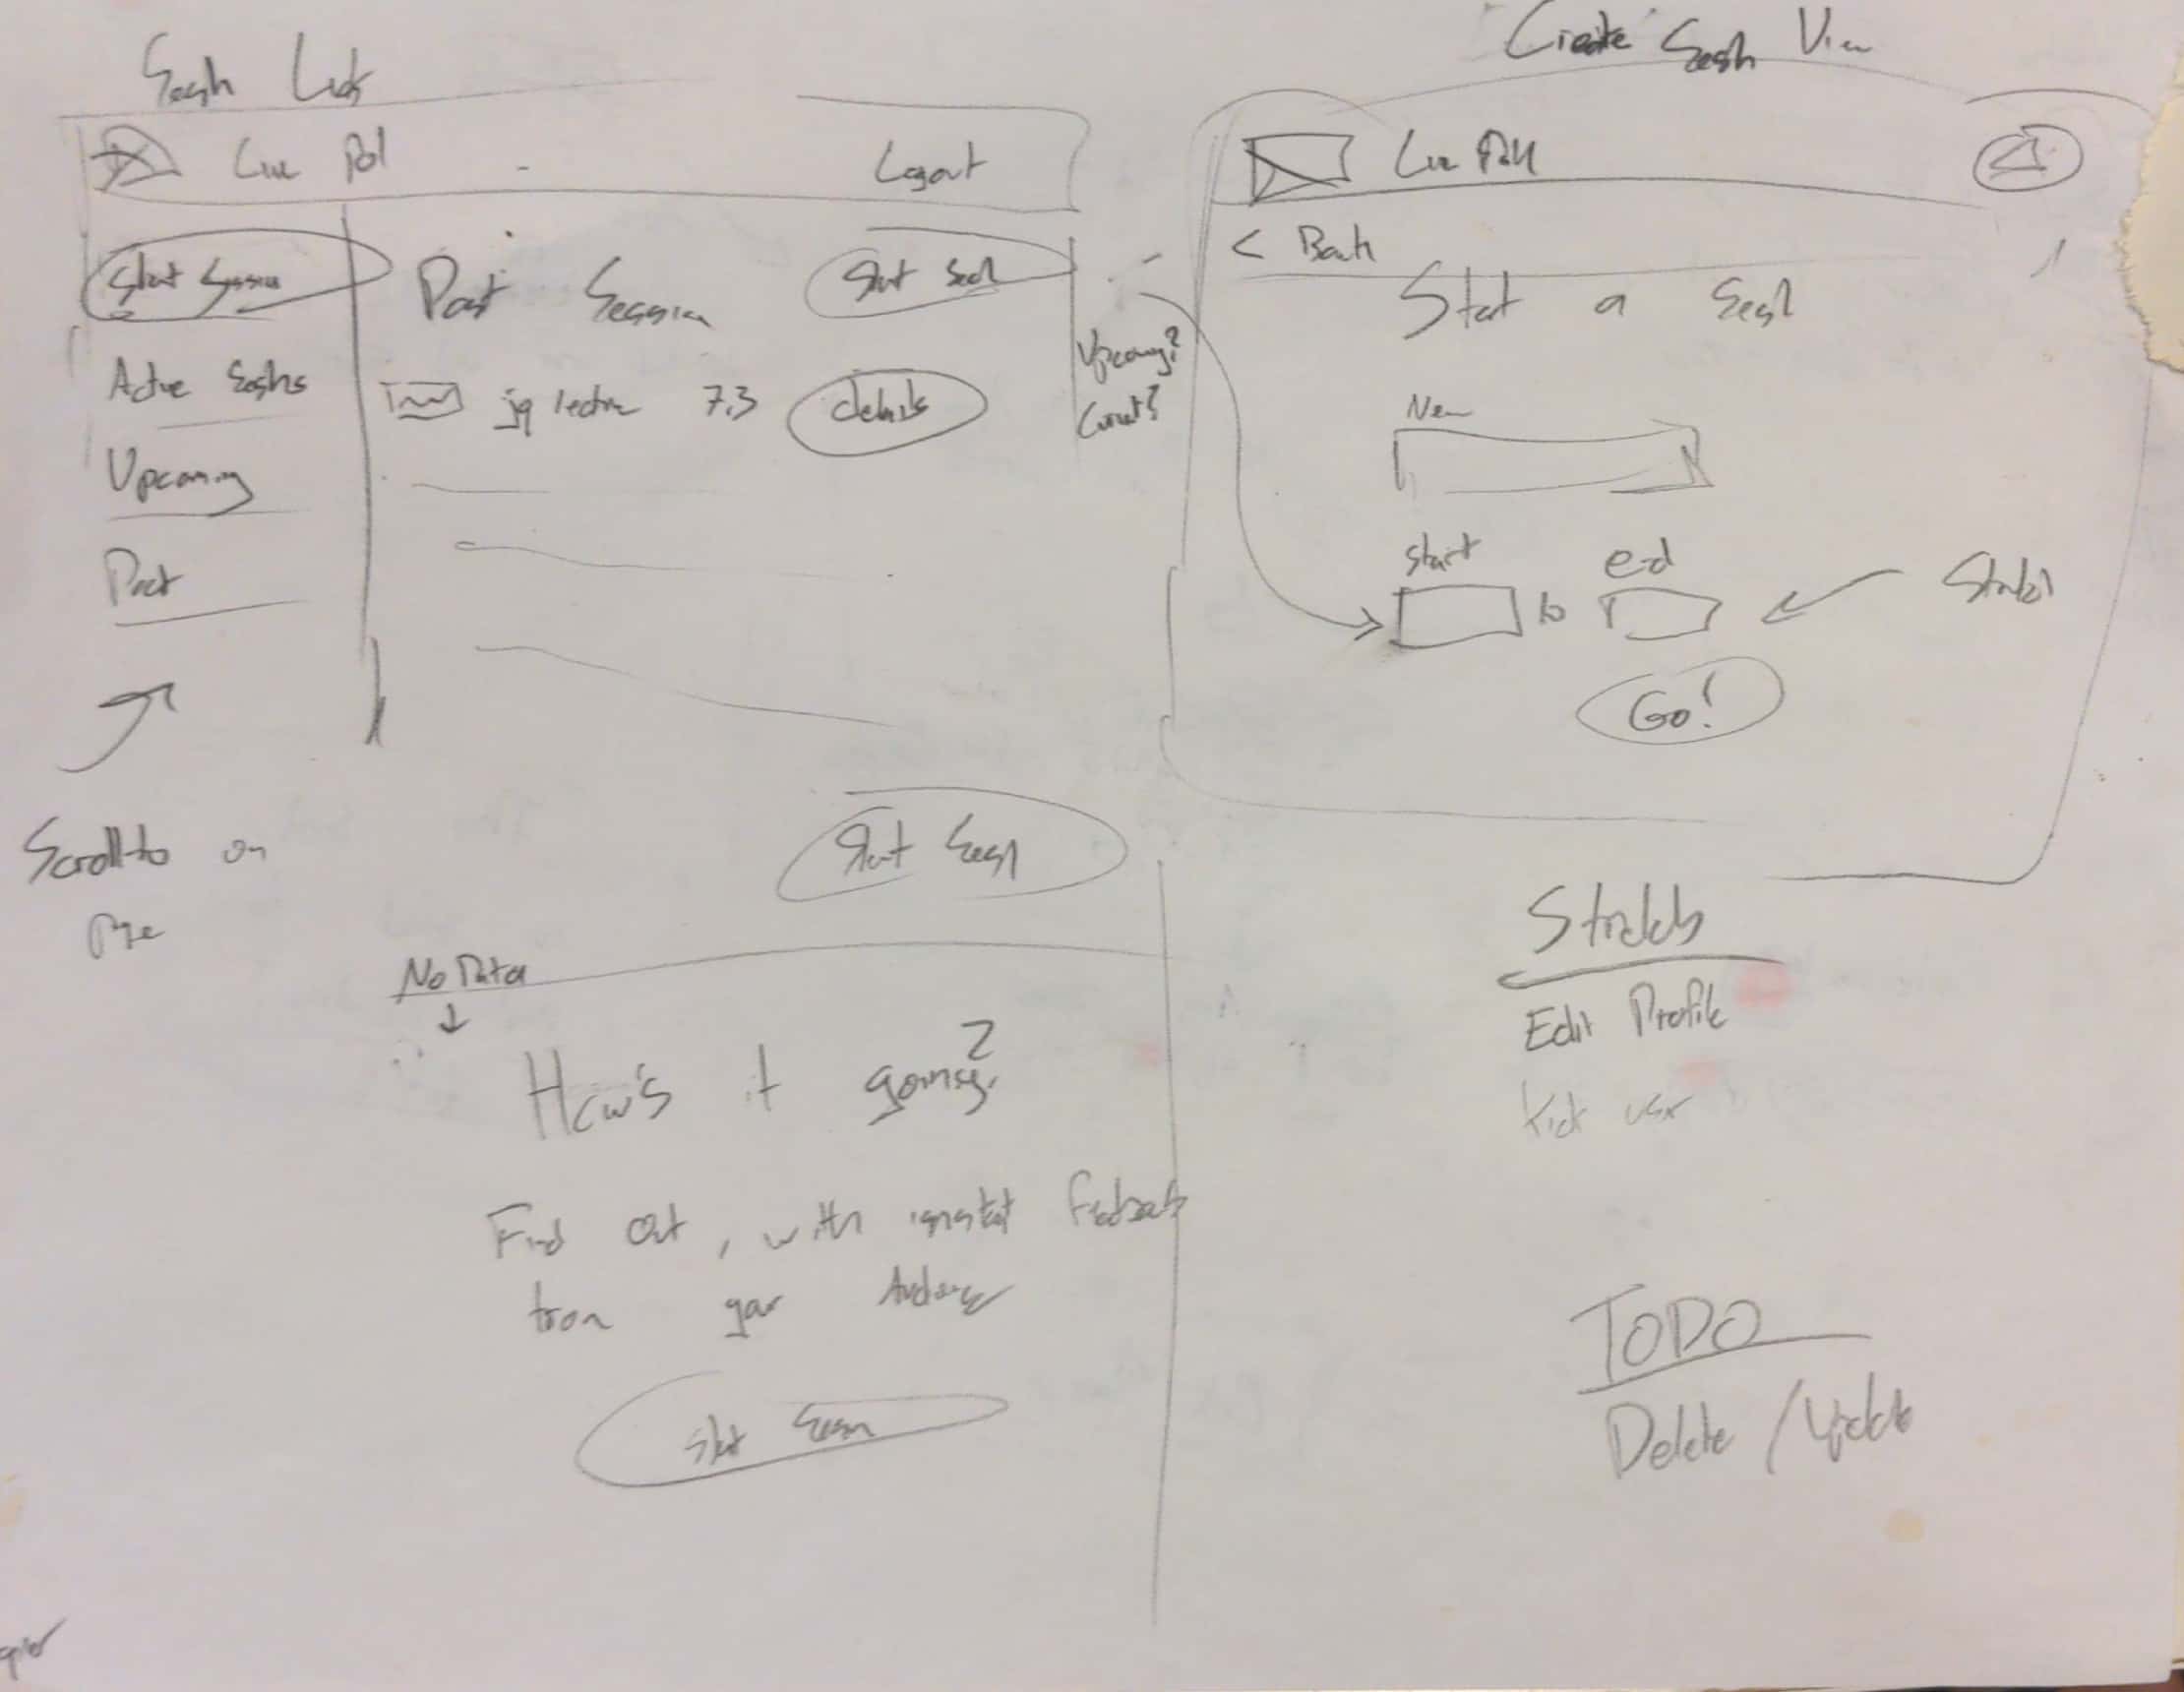 Sesh List
Live Poll
Logout
Start Session
Past Session
Start Sesh
Active Seshs
jq lecture 7.3
details
Upcoming?
Current?
Upcoming
Past
Scroll to on
Page
Start Sesh
No Data
How's it going?
Find out, with instant feedback
from your Audience
Start Sesh
Create Sesh View
Live Poll
< Back
Start a Sesh
start
end
to
Go!
Edit Profile
Kick user
TODO
Delete / Update